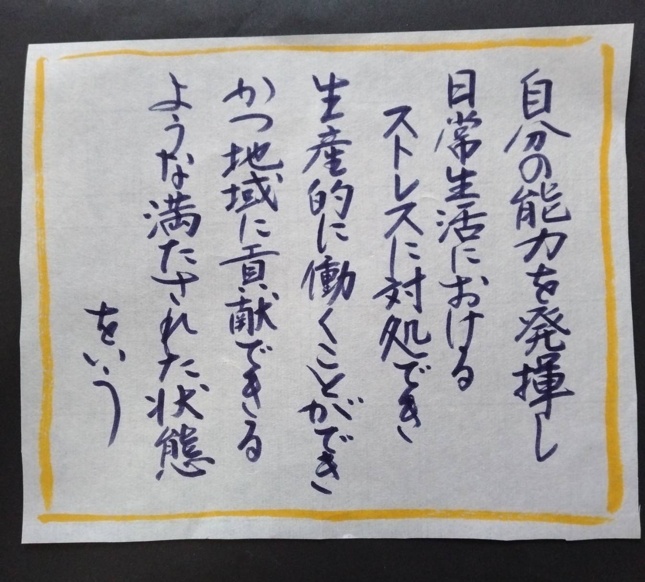 自分の能力を発揮し
日常生活における
ストレスに対処でき
生産的に働くことができ
かつ地域に貢献できる
ような満たされた状態
をいう